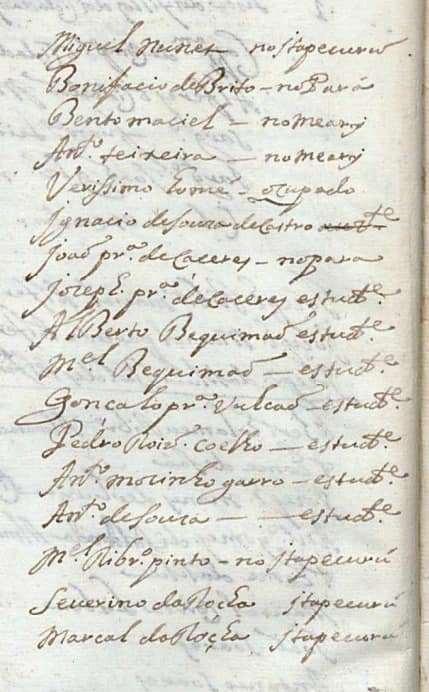 Miguel nunes no itapecurú
Bonifacio de Brito – no Pará
Bento maciel – no meary
Ant.º teixeira – no meary
Verissimo tomé – ocupado
Ignacio de Souza de Castro
Joaõ pr.ª de Caceres – no para
Joseph pr.ª de Caceres estud.te
AlBerto Bequimaõ estud.te
M.el Bequimaõ – estud.te
Goncalo pr.ª Vulcaõ – estud.te
Pedro Roiz coelho – estud.te
Ant.º morinho garro – estud.te
Ant.º de souza – – estud.te
M.el Ribr.º pinto – no itapecurú
Severino da Rocha itapecurú
Marcal da Rocha itapecurú